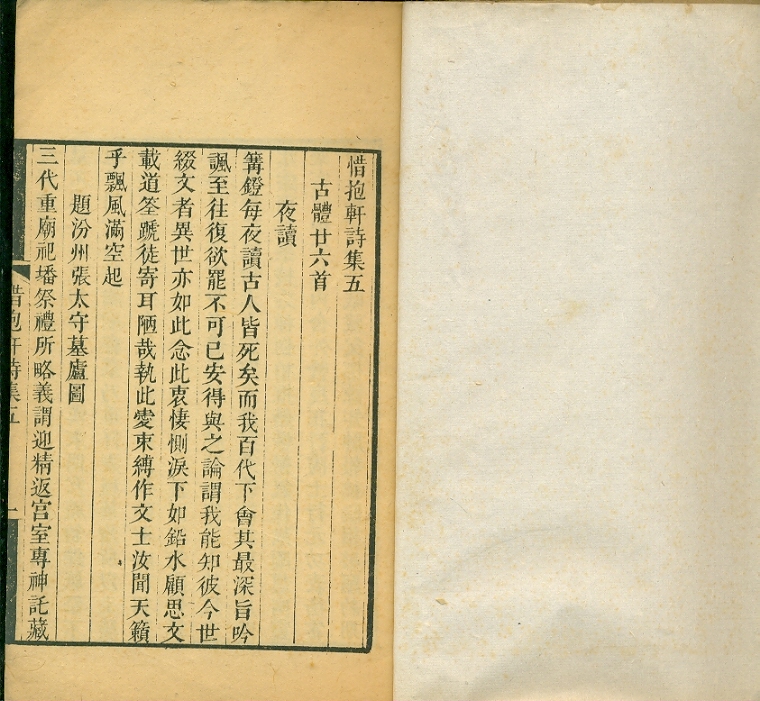 惜抱軒詩集五
古體廿六首
夜讀
篝鐙每夜讀古人皆死矣而我百代下會其最深旨吟
諷至往復欲罷不可已安得與之論謂我能知彼今世
綴文者異世亦如此念此衷悽惻淚下如鉛水顧思文
載道筌蹏徒寄耳陋哉執此爱束縛作文士汝聞天籟
乎飄風滿空起
題汾州張太守墓廬圖
三代重廟祀墦祭禮所略義謂迎精返宫室專神託藏
惜抱軒詩集五
一